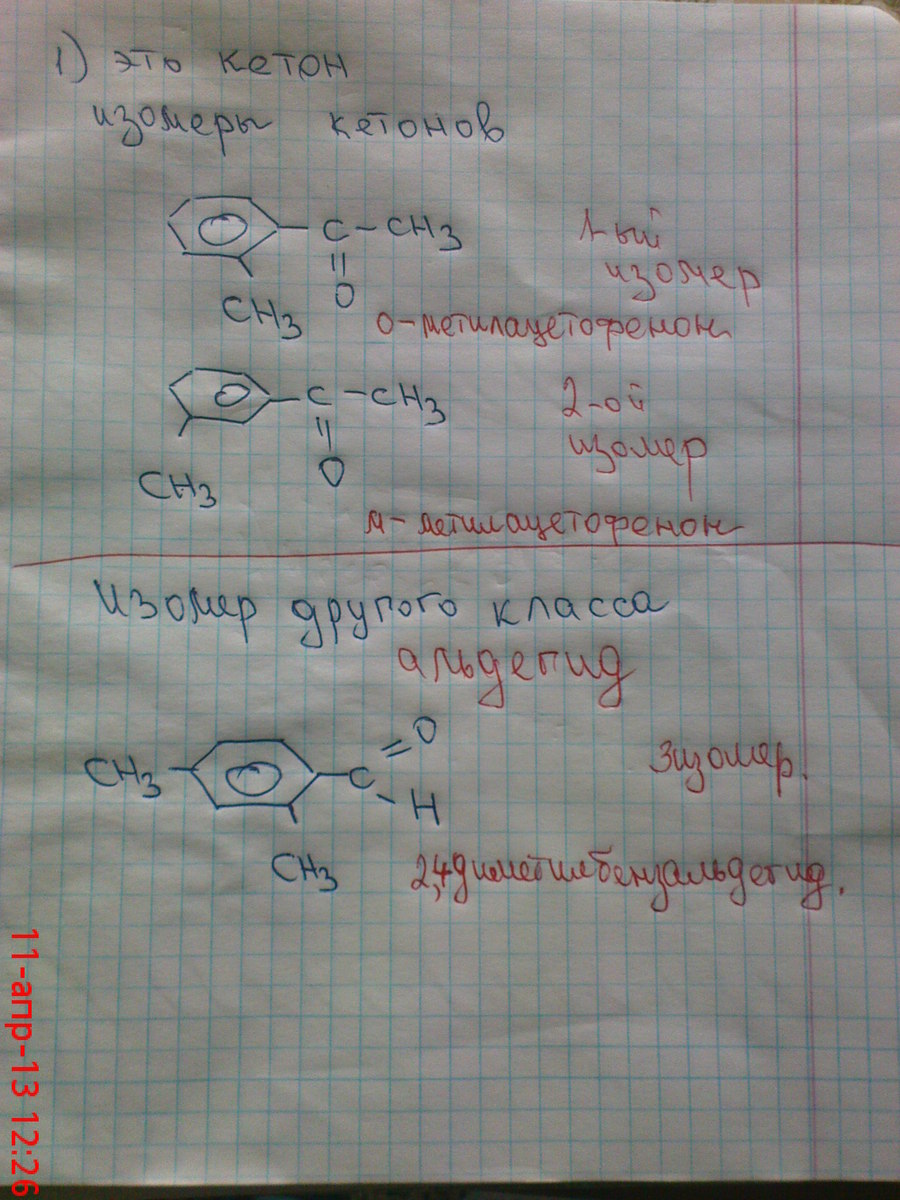 1) это кетон
изомеры кетонов
C-CH3
||
O
CH3
1-ый
изомер
о-метилацетофенон
C-CH3
||
O
CH3
2-ой
изомер
м-метилацетофенон
Изомер другого класса
альдегид
CH3
C
=O
-H
CH3
3изомер.
2,4диметилбензальдегид.
11-апр-13 12:26